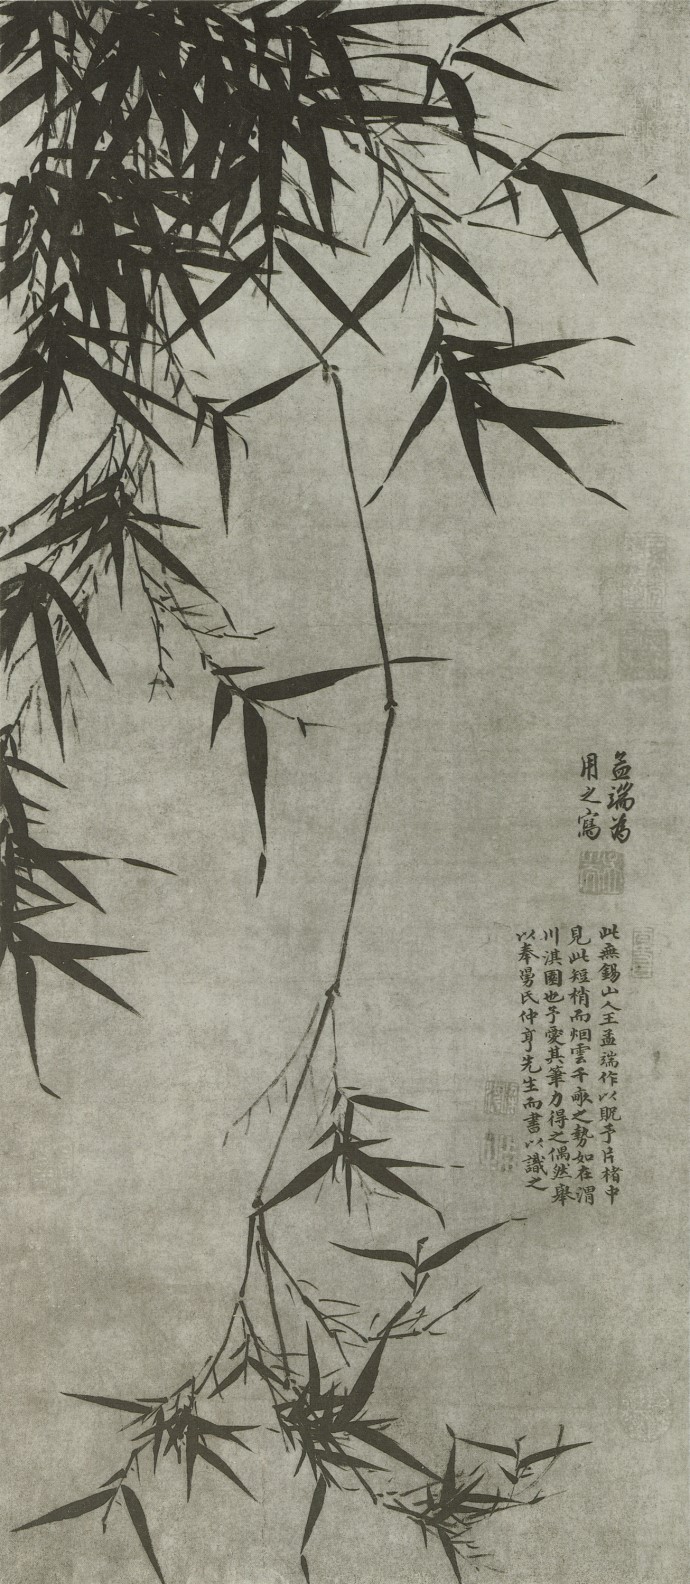 孟端為
用之寫
此無錫山人王孟端作以貺予片楮中
見此短梢而烟雲千畝之勢如在渭
川淇園也予愛其筆力得之偶然舉
以奉舅氏仲亨先生而書以識之